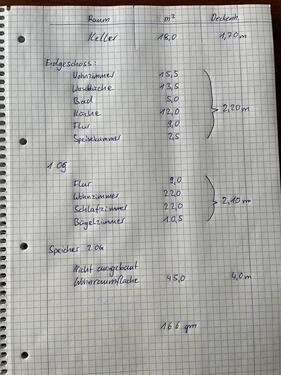 Raum m² Deckenh.
Keller 18,0 1,70 m
Erdgeschoss:
Wohnzimmer 15,5
Waschküche 13,5
Bad 5,0
Küche 12,0 2,20 m
Flur 9,0
Speisekammer 2,5
1 OG
Flur 9,0
Wohnzimmer 22,0
Schlafzimmer 22,0 2,10 m
Bügelzimmer 10,5
Speicher 2.OG
Nicht ausgebaut
Wohnraumfläche 45,0 4,0 m
166 qm